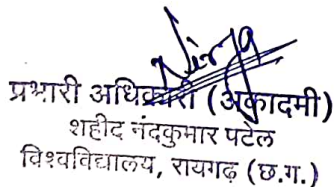 प्रभारी अधिकारी (अकादमी)
शहीद नंदकुमार पटेल
विश्वविद्यालय, रायगढ़ (छ.ग.)